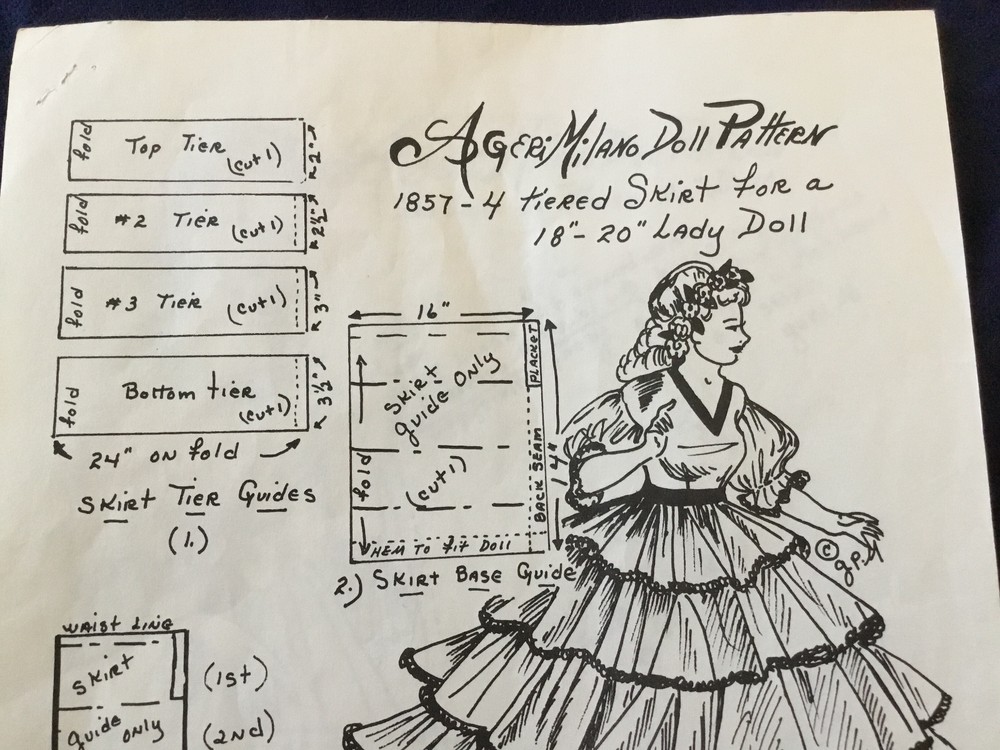 A GERi MilANO Doll PATTERN
1857-4 tiered Skirt for a
18"-20" Lady Doll
fold
Top Tier
(cut 1)
2"
fold
#2 Tier
(cut 1)
2½"
fold
#3 Tier
(cut 1)
3"
fold
Bottom tier
(cut 1)
3½"
24" on fold
Skirt Tier Guides
(1.)
16"
PLACKET
Skirt
guide Only
fold
(cut 1)
BACK SEAM
14"
HEM TO fit Doll
2.) Skirt Base Guide
© g.P.M
WAIST LINE
Skirt
guide only
(1st)
(2nd)